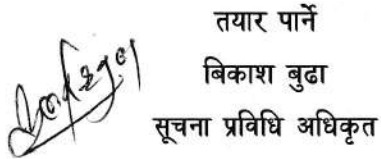 तयार पार्ने
बिकाश बुढा
सूचना प्रविधि अधिकृत